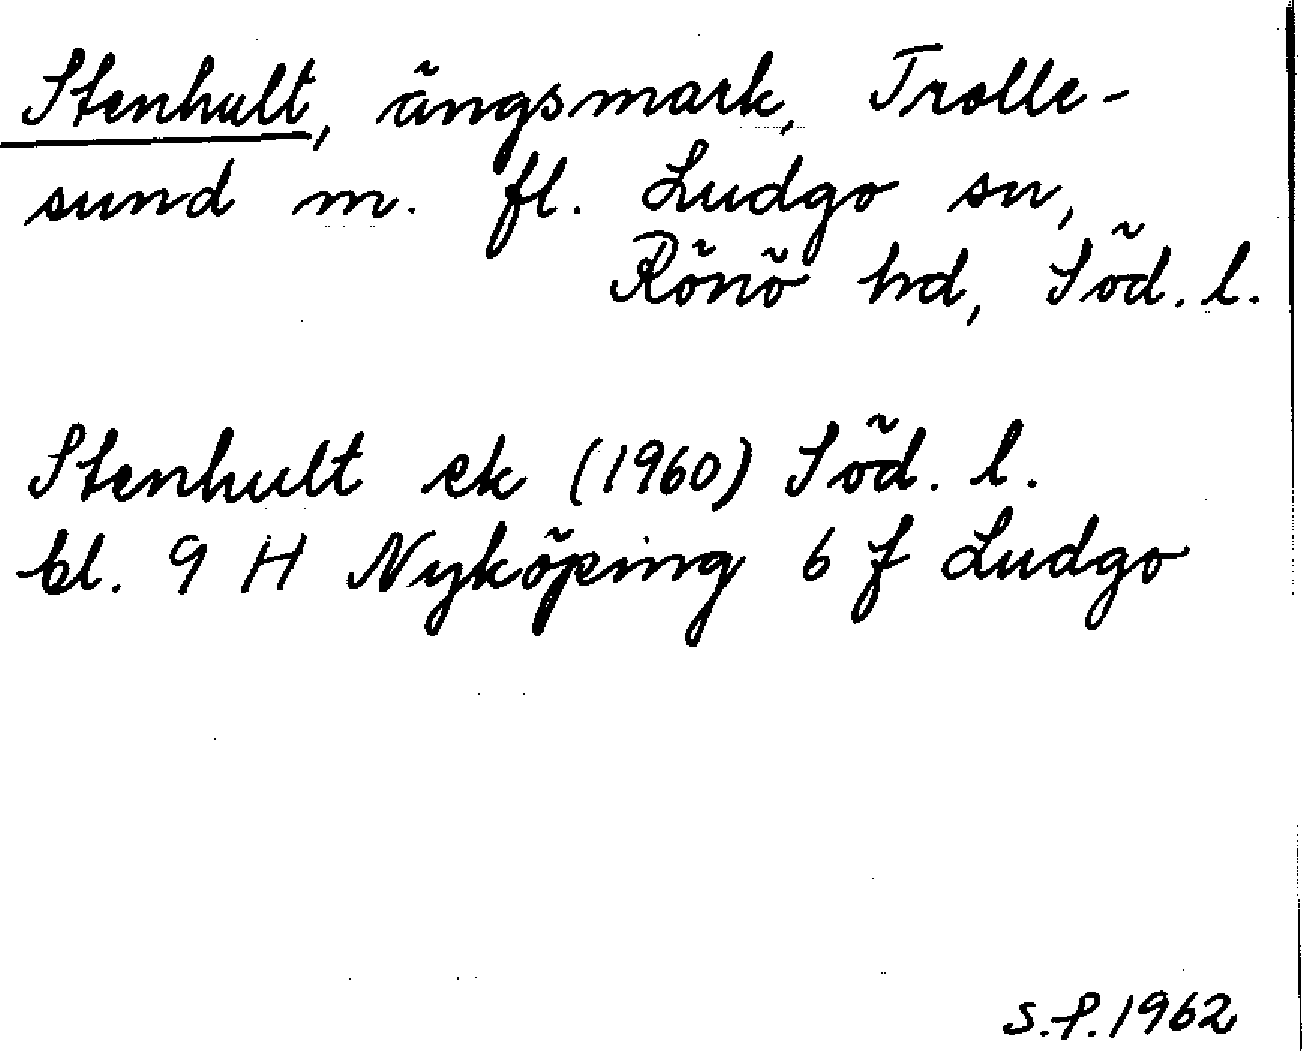 Stenhult, ängsmark, Trolle-
sund m. fl. Ludgo sn,
Rönö hd, Söd. l.
Stenhult ek (1960) Söd. l.
bl. 9 H Nyköping 6 f Ludgo
S.P. 1962